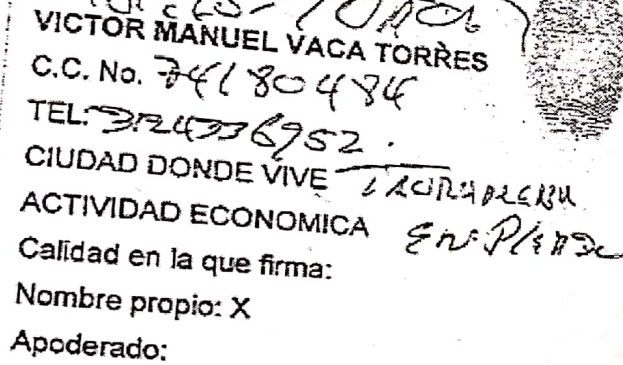 VICTOR MANUEL VACA TORRES
C.C. No. 74180484
TEL: 3124336952.
CIUDAD DONDE VIVE
ACTIVIDAD ECONOMICA
Calidad en la que firma:
Nombre propio: X
Apoderado: